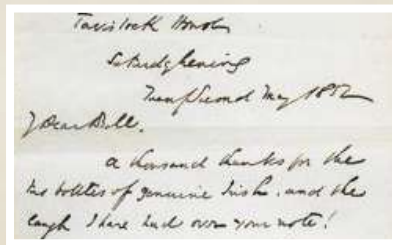 Tavistock House
Saturday Evening
Twenty Second May 1852
My Dear Bell.
a thousand thanks for the
two bottles of genuine Irish, and the
laugh I have had over your note!